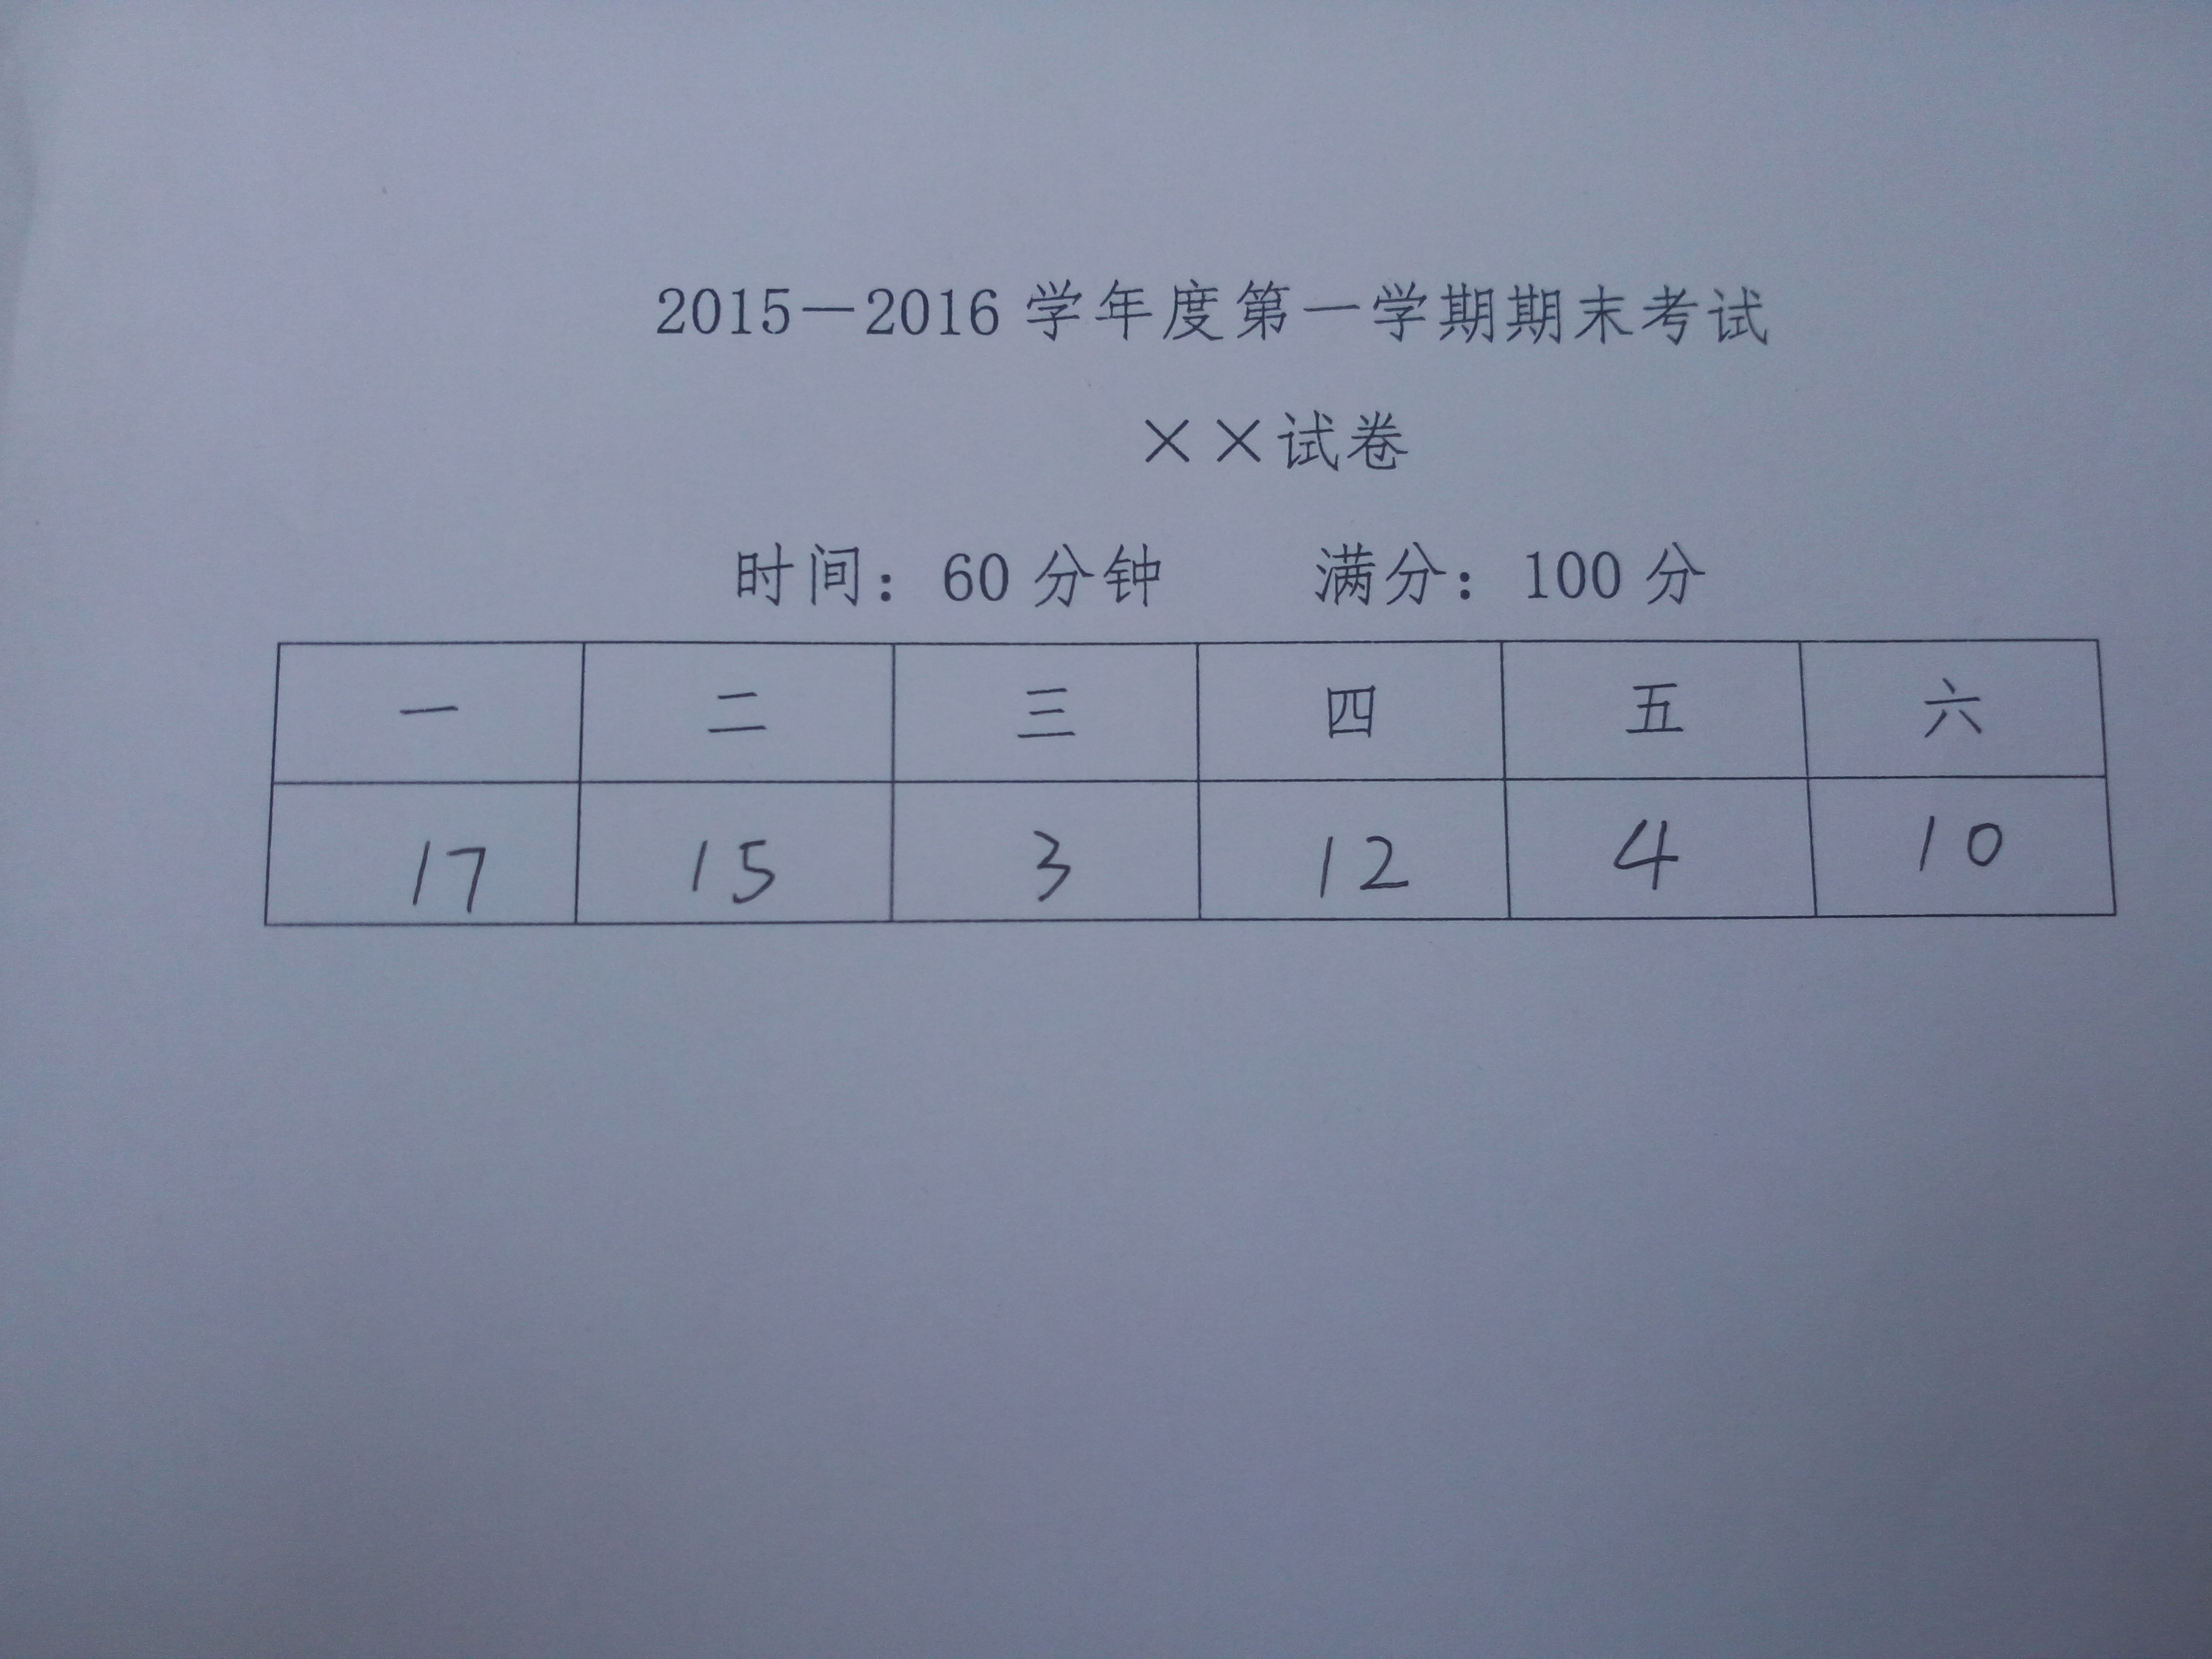 2015－2016学年度第一学期期末考试
××试卷
时间：60分钟 满分：100分
一 二 三 四 五 六
17 15 3 12 4 10